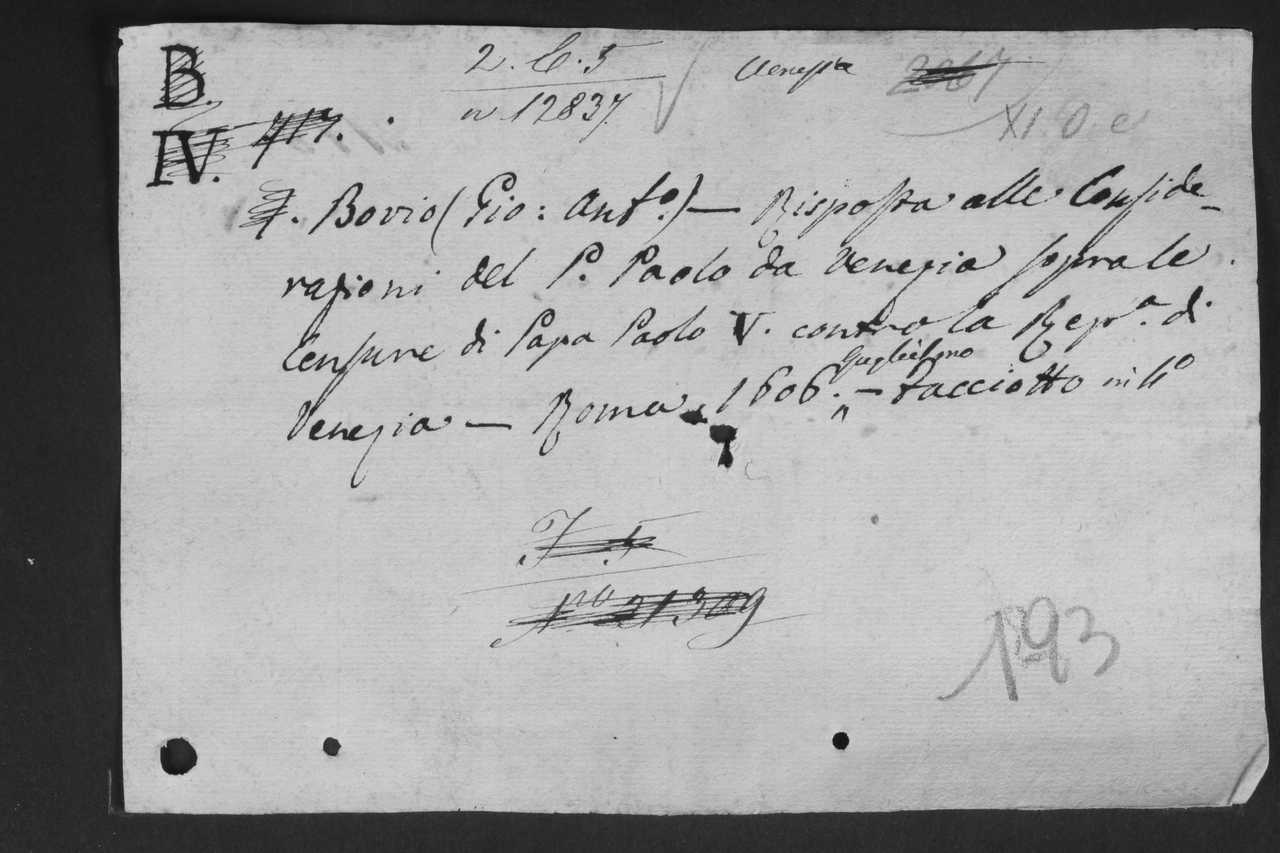 B.
2. C. 5
Venezia
2067
n 12837.
XI. O. e
IV.
417.
7. Bovio (Gio: Ant.º) — Risposta alle Conside-
razioni del P. Paolo da Venezia sopra le
Censure di Papa Paolo V. contro la Rep.ª di
Guglielmo
Venezia — Roma, 1606. — Facciotto in 4º
F. 5
Nº 21309
193